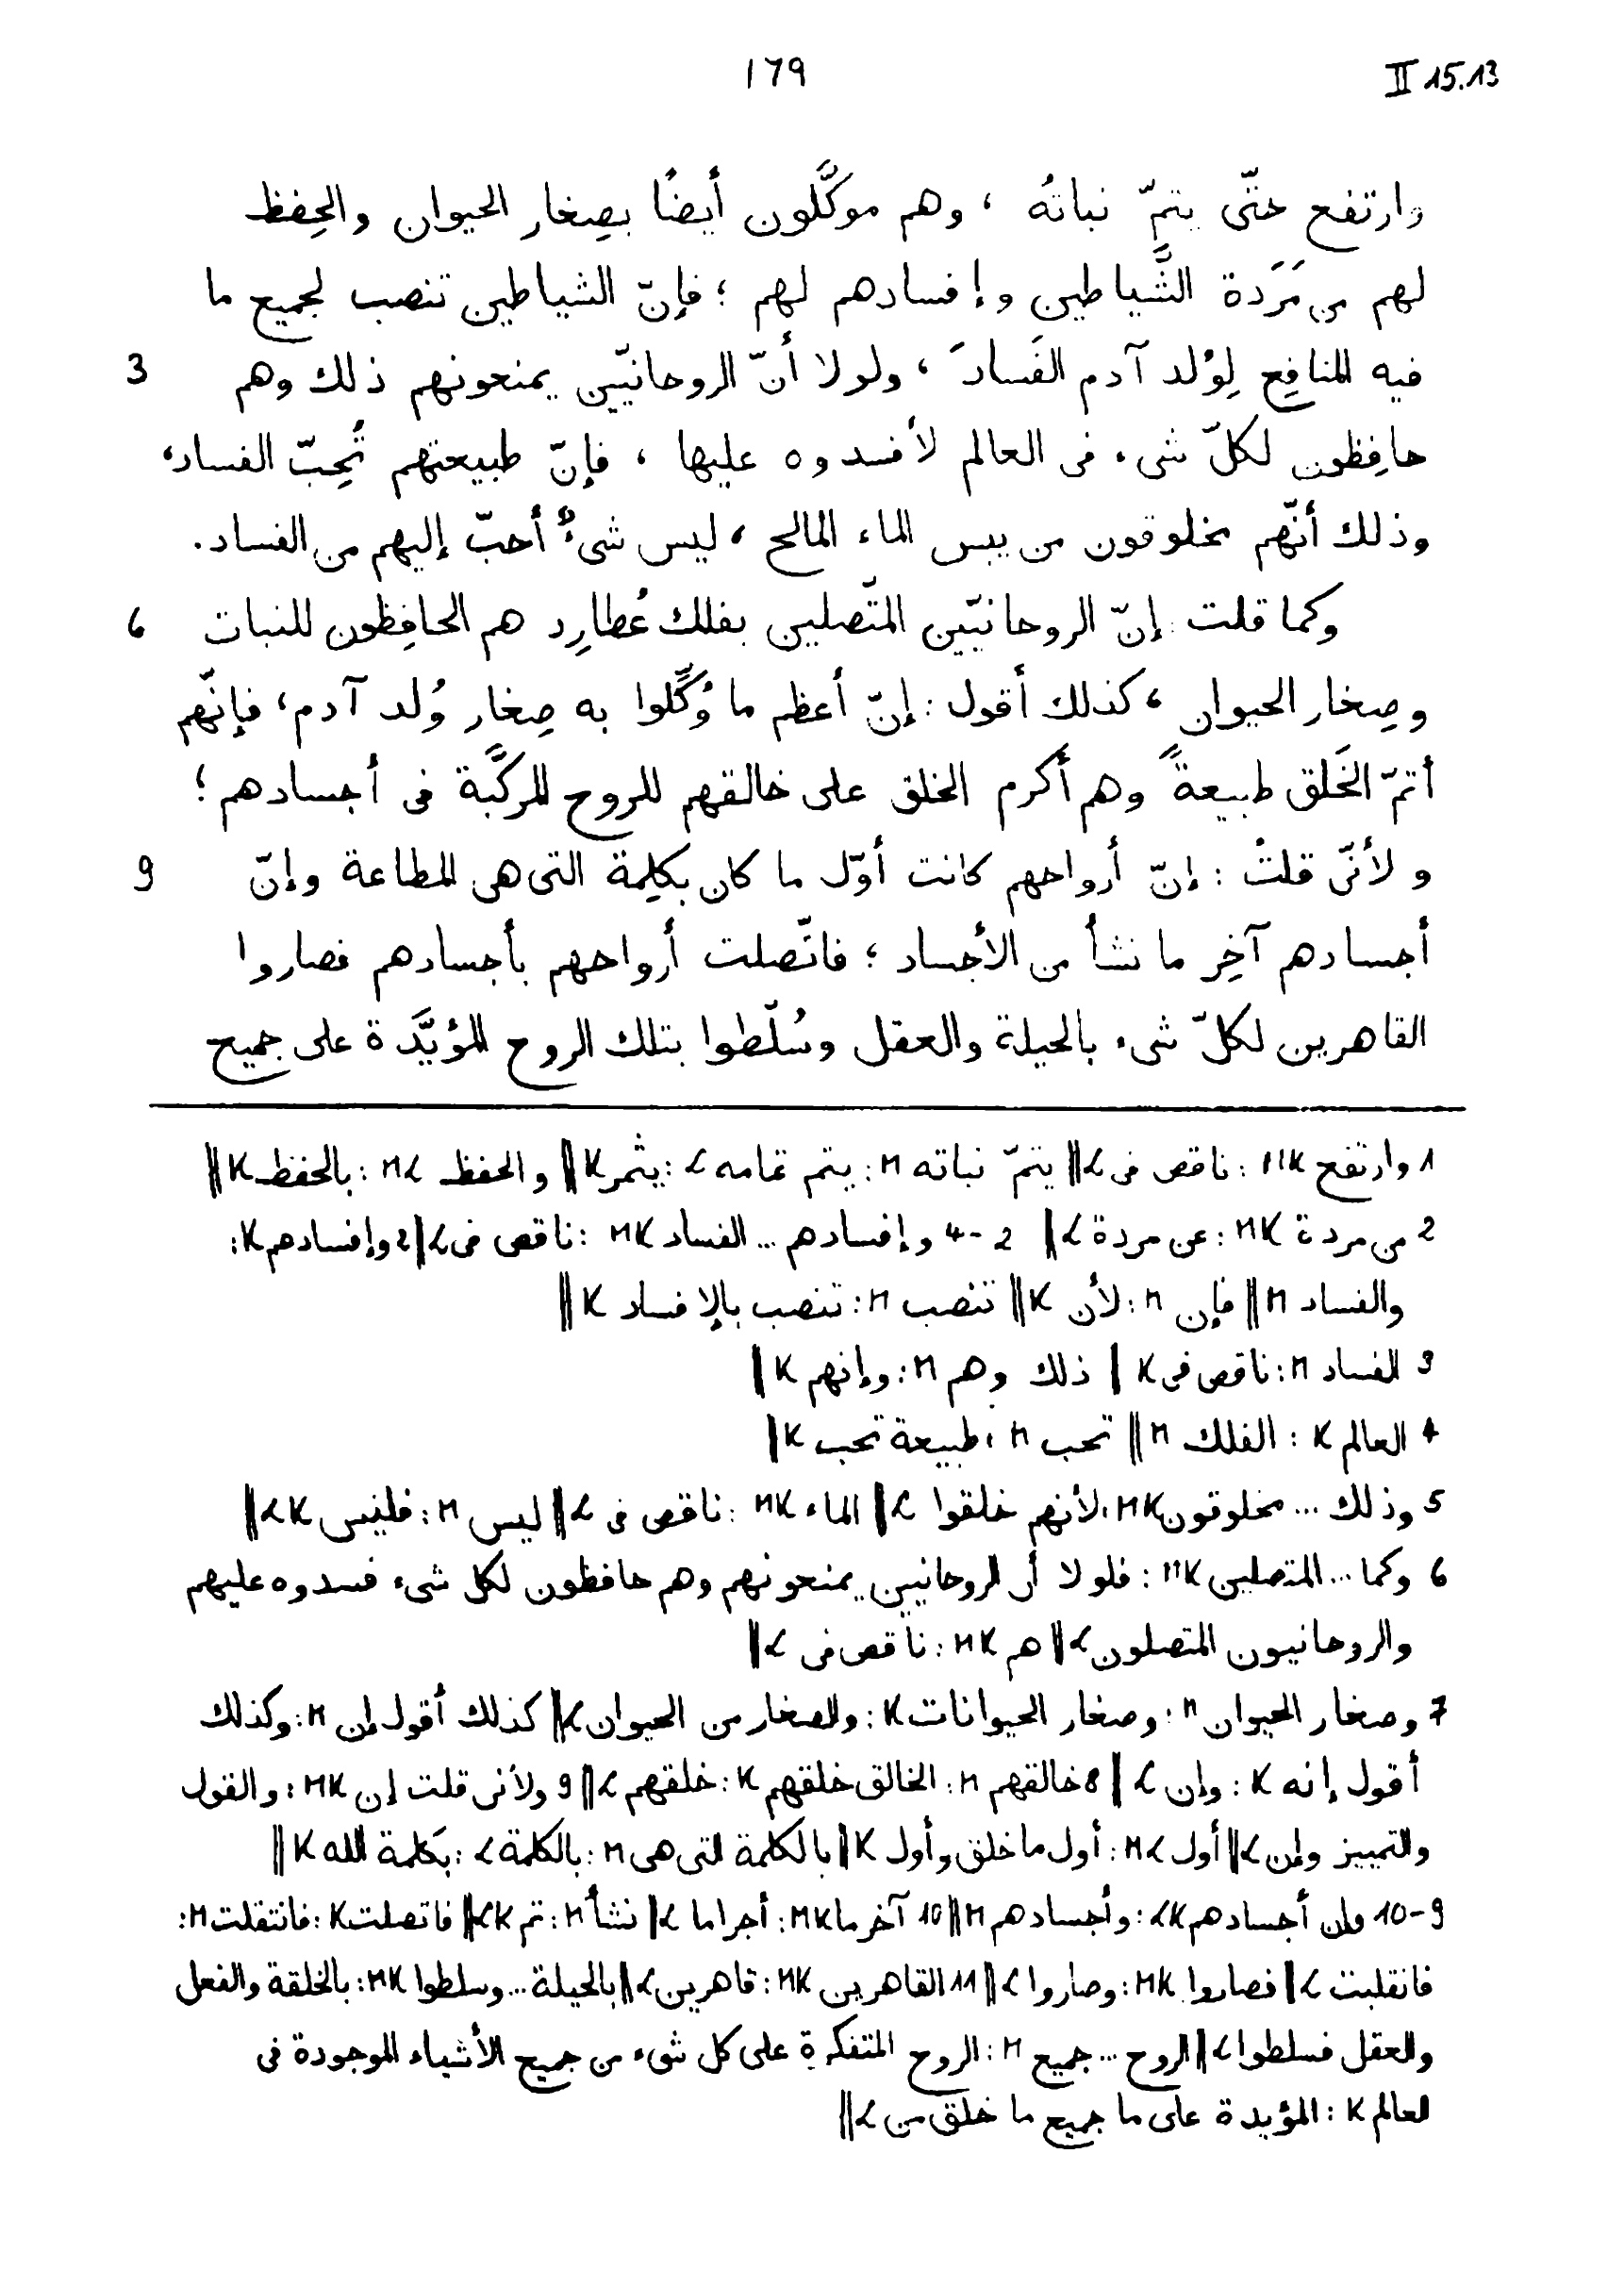 ١٦٩
II 15.13
وارتفع حتّى يتمّ نباتُه ، وهم موكَّلون أيضًا بصِغار الحيوان والحِفظ
لهم من مَرَدة الشَّياطين وإفسادهم لهم ؛ فإنّ الشياطين تنصب لجميع ما
فيه المنافِع لِوُلد آدم الفَسادَ ، ولولا أنّ الروحانيّين يمنعونهم ذلك وهم 3
حافِظون لكلّ شىء فى العالم لأفسدوه عليها ، فإنّ طبيعتهم تُحِبّ الفساد،
وذلك أنّهم مخلوقون من يبس الماء المالح ، ليس شىءٌ أحبّ إليهم من الفساد.
وكما قلت : إنّ الروحانيّين المتّصلين بفلك عُطارِد هم الحافِظون للنبات 6
وصِغار الحيوان ، كذلك أقول : إنّ أعظم ما وُكِّلوا به صِغار وُلد آدم ، فإنّهم
أتمّ الخَلق طبيعةً وهم أكرم الخلق على خالقهم للروح المركَّبة فى أجسادهم ؛
ولأنّى قلتُ : إنّ أرواحهم كانت أوّل ما كان بكلِمة التى هى المطاعة وإنّ 9
أجسادهم آخِر ما نشأ من الأجساد ؛ فاتّصلت أرواحهم بأجسادهم فصاروا
القاهرين لكلّ شىء بالحيلة والعقل وسُلّطوا بتلك الروح المؤيَّدة على جميع
1 وارتفع MK : ناقص فى L || يتمّ نباته M : يتم تمامه L : يثمر K || والحفظ ML : بالحفظ K ||
2 من مردة MK : عن مردة L || 2-4 وإفسادهم ... الفساد MK : ناقص فى L || 2 وإفسادهم K :
والفساد M || فإن M : لأن K || تنصب M : تنصب بالإفساد K ||
3 الفساد M : ناقص فى K || ذلك وهم M : وإنهم K ||
4 العالم K : الفلك M || تحب M : طبيعة تحب K ||
5 وذلك ... مخلوقون MK : لأنهم خلقوا L || الماء MK : ناقص فى L || ليس M : فليس LK ||
6 وكما ... المتصلين MK : فلولا أن الروحانيين يمنعونهم وهم حافظون لكل شىء فسدوه عليهم
والروحانيون المتصلون L || هم MK : ناقص فى L ||
7 وصغار الحيوان M : وصغار الحيوانات K : والصغار من الحيوان L || كذلك أقول إن M : وكذلك
أقول إنه K : وإن L || 8 خالقهم M : الخالق خلقهم K : خلقهم L || 9 ولأنى قلت إن MK : والقول
والتمييز وإن L || أول ML : أول ما خلق وأول K || بالكلمة التى هى M : بالكلمة L : بكلمة الله K ||
9-10 وإن أجسادهم LK : وأجسادهم M || 10 آخر ما MK : أجراما L || نشأ M : تم LK || فاتصلت K : فانتقلت M :
فانقلبت L || فصاروا MK : وصاروا L || 11 القاهرين MK : قاهرين L || بالحيلة ... وسلطوا MK : بالخلقة والفعل
والعقل فسلطوا L || الروح ... جميع M : الروح المتفكرة على كل شىء من جميع الأشياء الموجودة فى
العالم K : المؤيدة على ما جميع ما خلق من L ||